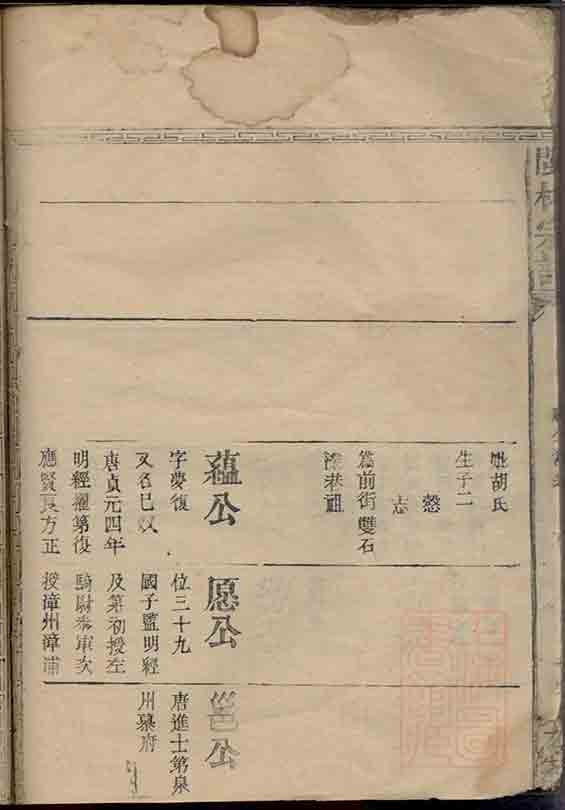 妣胡氏
生子二
慤
志
篤前街雙石
漈巷祖
蘊公
字夢復
又名巳奴
唐貞元四年
明經擢第復
應賢良方正
愿公
位三十九
國子監明經
及第初授左
騎尉參軍次
授漳州漳浦
邕公
唐進士第泉
州幕府